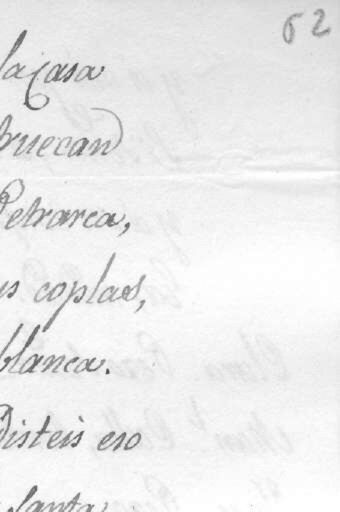 62
la casa
truecan
Petrarca,
us coplas,
blanca.
Disteis eso
santa